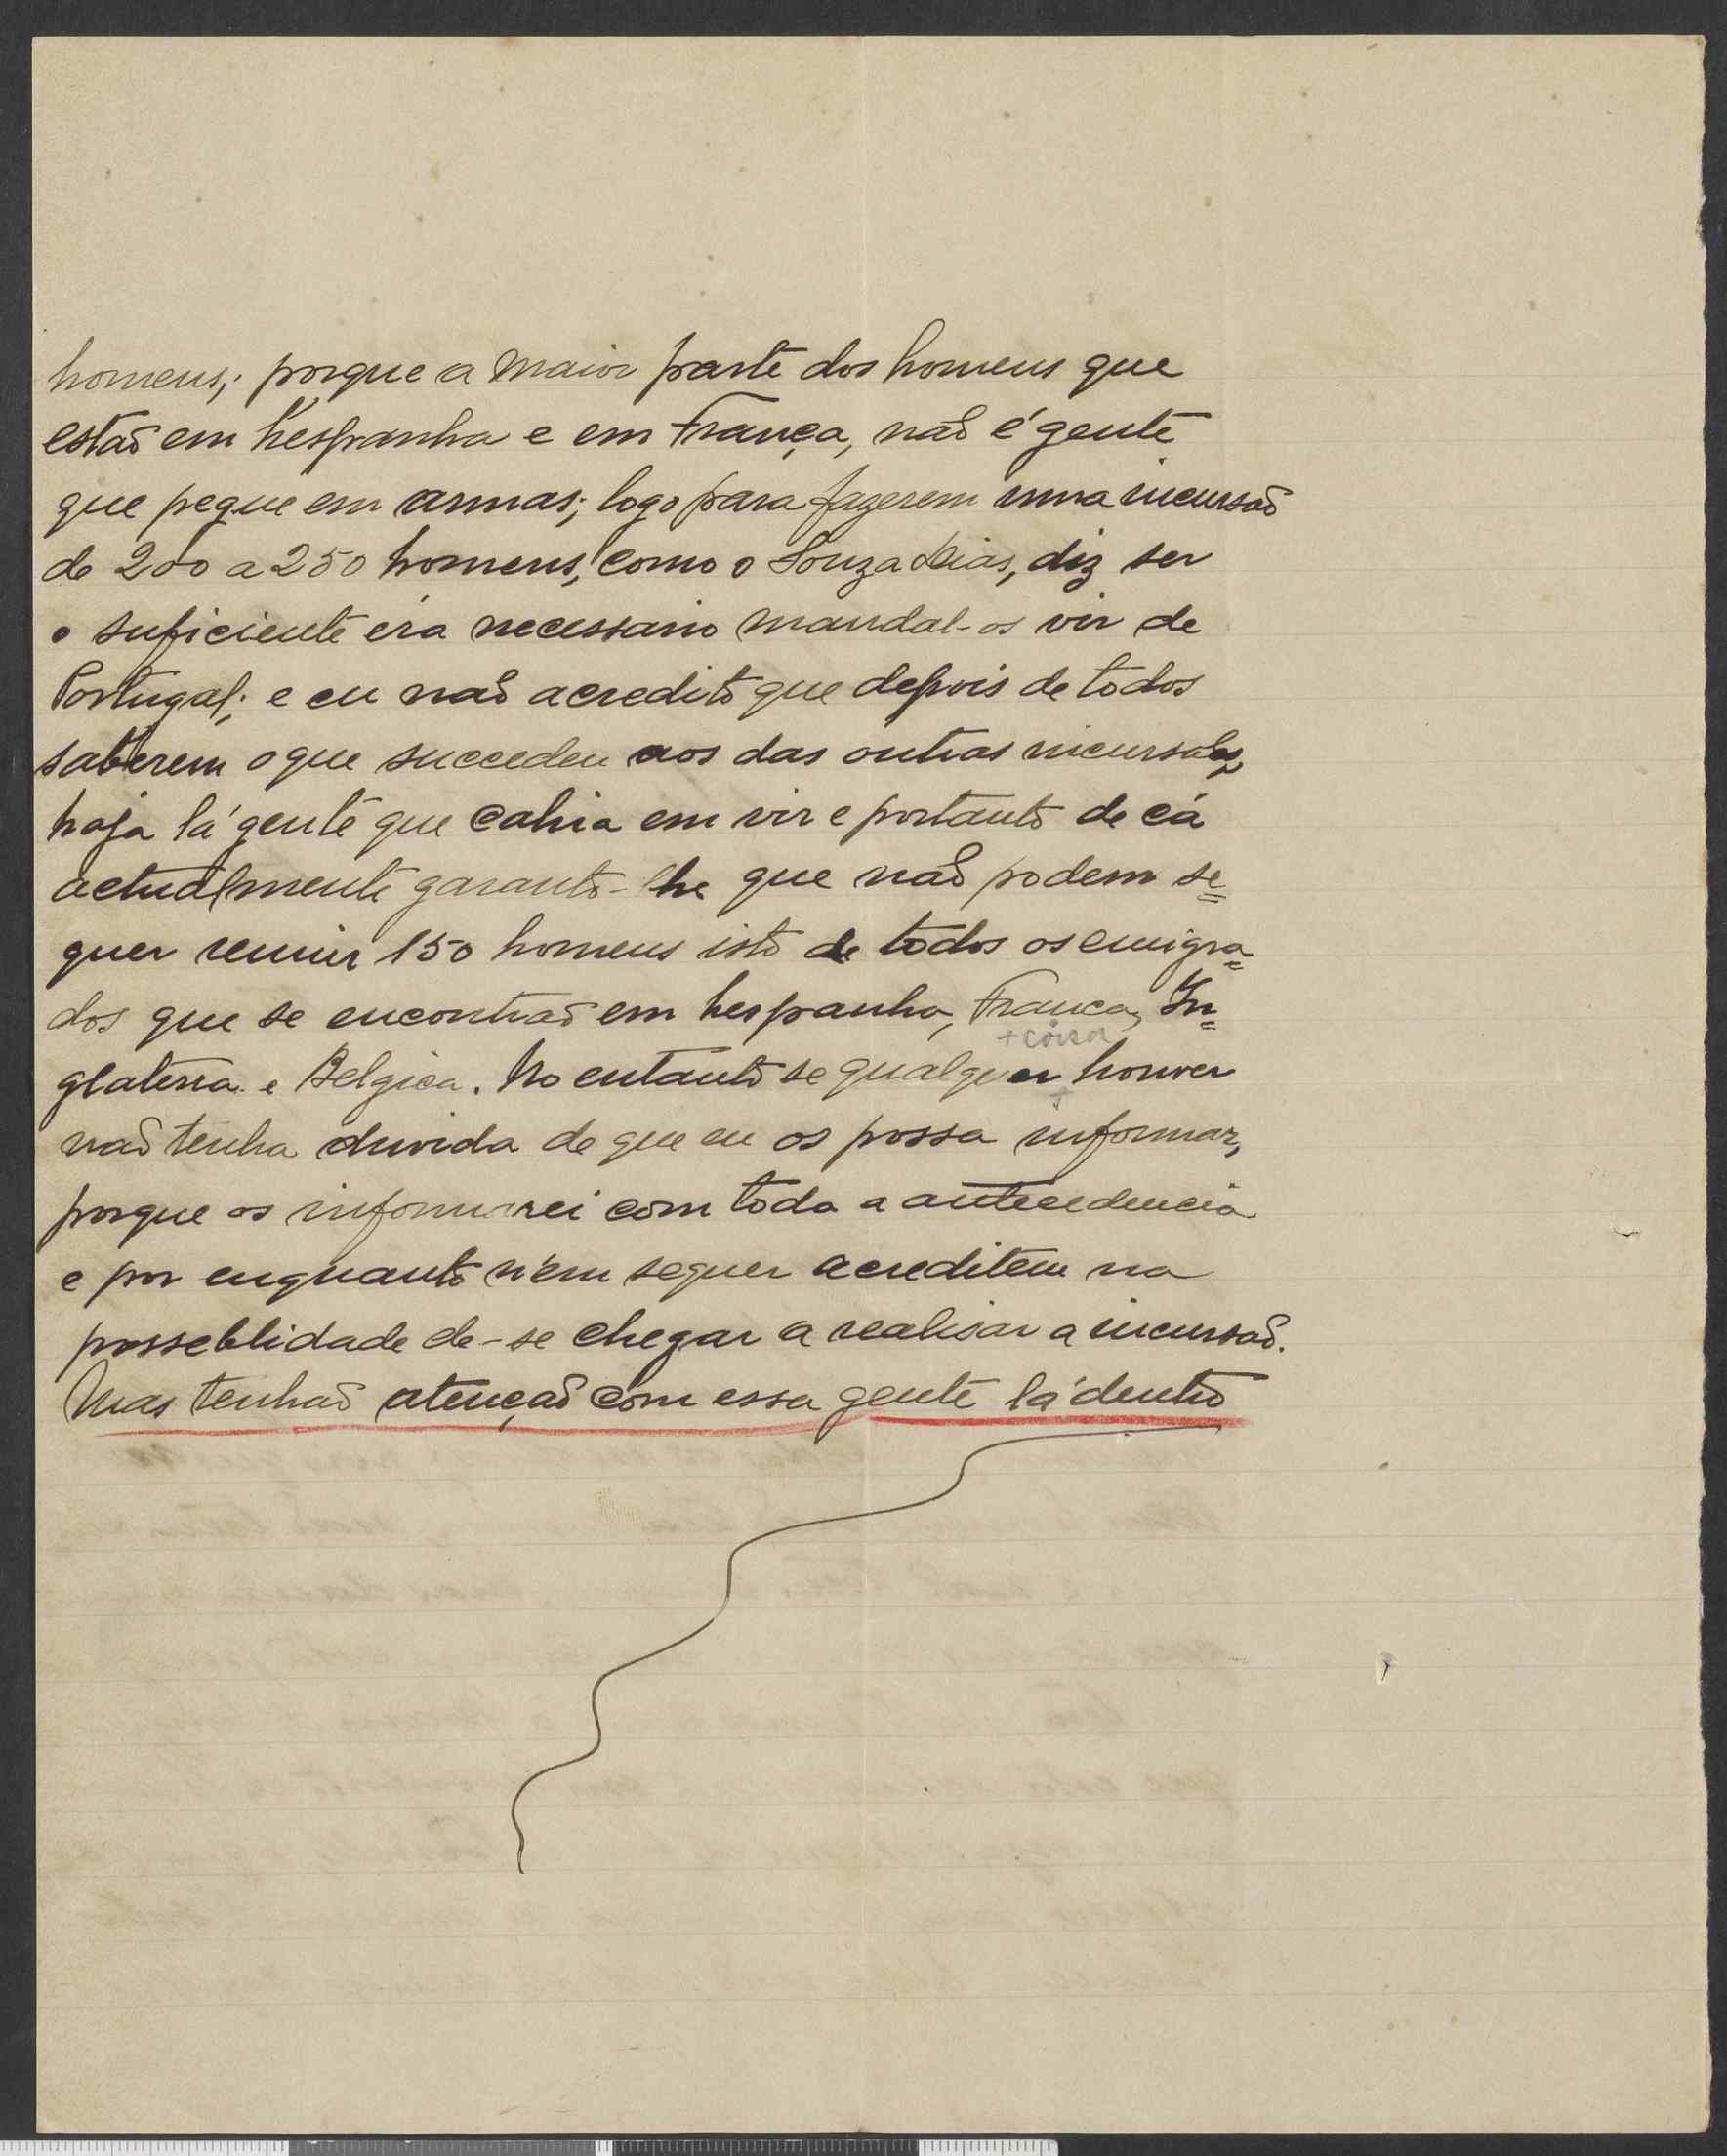 homens; porque a maior parte dos homens que
estaõ em hespanha e em França, naõ é gente
que pegue em armas; logo para fazerem uma incursaõ
de 200 a 250 homens, como o Souza Dias, diz ser
o suficiente éra necessario mandal-os vir de
Portugal; e eu naõ acredito que depois de todos
saberem o que succedeu aos das outras incursoẽs,
haja lá gente que cahia em vir e portanto de cá
actualmente garanto-lhe que naõ podem se=
quer reunir 150 homens isto de todos os emigra=
dos que se encontraõ em hespanha, França, In=
+ coisa
glaterra e Belgica. No entanto se qualquer + houver
naõ tenha duvida de que eu os possa informar,
porque os informarei com toda a antecedencia
e por enquanto nem sequer acreditem na
posseblidade de-se chegar a realisar a incursaõ.
Mas tenhaõ atençaõ com essa gente lá dentro